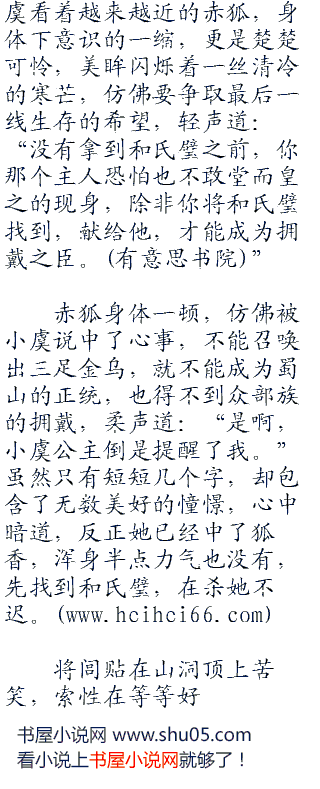 虞看着越来越近的赤狐，身
体下意识的一缩，更是楚楚
可怜，美眸闪烁着一丝清冷
的寒芒，仿佛要争取最后一
线生存的希望，轻声道：
“没有拿到和氏璧之前，你
那个主人恐怕也不敢堂而皇
之的现身，除非你将和氏璧
找到，献给他，才能成为拥
戴之臣。(有意思书院)”
赤狐身体一顿，仿佛被
小虞说中了心事，不能召唤
出三足金乌，就不能成为蜀
山的正统，也得不到众部族
的拥戴，柔声道：“是啊，
小虞公主倒是提醒了我。”
虽然只有短短几个字，却包
含了无数美好的憧憬，心中
暗道，反正她已经中了狐
香，浑身半点力气也没有，
先找到和氏璧，在杀她不
迟。(www.hcihci66.com)
将闾贴在山洞顶上苦
笑，索性在等等好
书屋小说网 www.shu05.com
看小说上书屋小说网就够了！